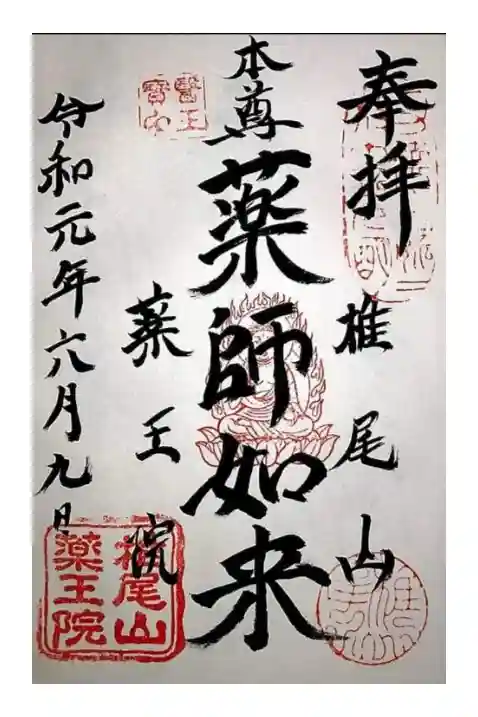 奉拝
椎尾山
本尊
薬師如来
薬王院
令和元年六月九日
醫王寳穴
椎尾山
薬王院